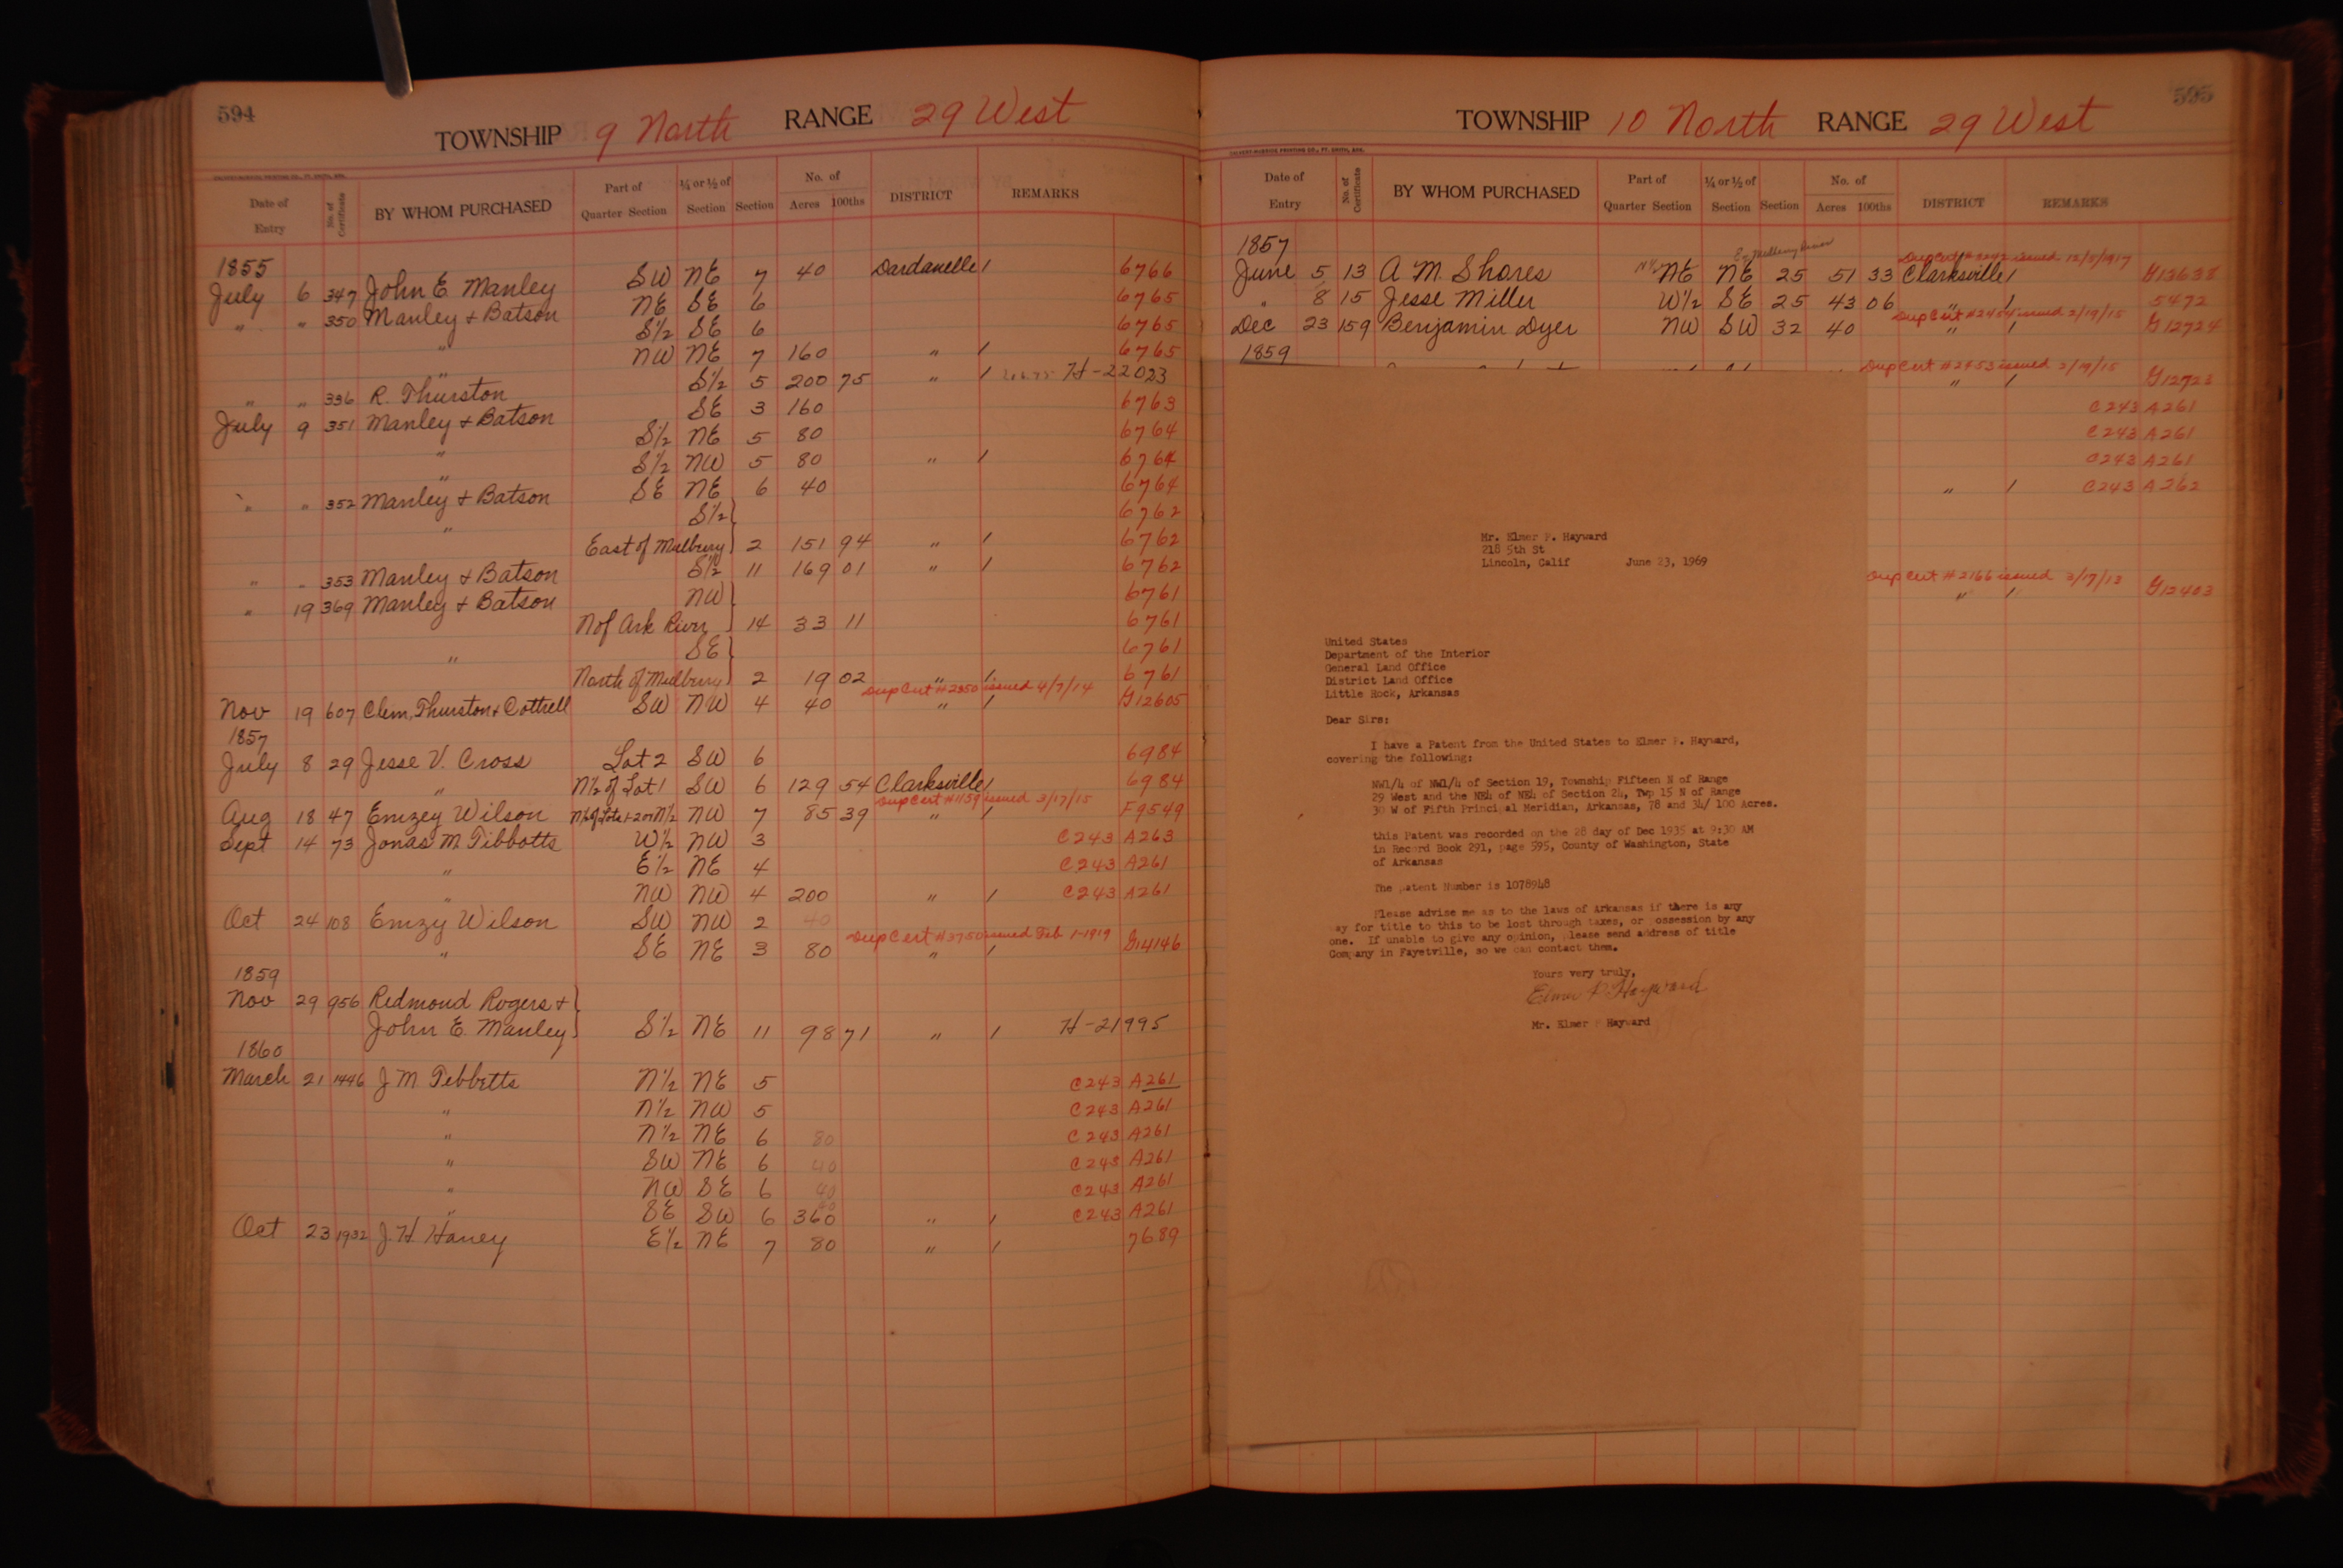 594
TOWNSHIP 9 North RANGE 29 West
Date of Entry No. of Certificate BY WHOM PURCHASED Part of Quarter Section ¼ or ½ of Section Section No. of Acres 100ths DISTRICT REMARKS
1855
July 6 347 John E. Manley SW NE 7 40 Dardanelle / 6766
" " 350 Manley + Batson NE SE 6 6765
" S½ SE 6 6765
" NW NE 7 160 " / 6765
" " 336 R. Thurston S½ 5 200 75 " / H-22023
July 9 351 Manley + Batson SE 3 160 6763
" S½ NE 5 80 6764
" S½ NW 5 80 " / 6764
" " 352 Manley + Batson SE NE 6 40 6764
" S½ } 6762
East of Mulberry } 2 151 94 " / 6762
" " 353 Manley + Batson S½ 11 169 01 " / 6762
" 19 369 Manley + Batson NW } 6761
N of Ark River } 14 33 11 6761
" SE } 6761
North of Mulberry } 2 19 02 " / 6761
Dup Cert #2350 issued 4/7/14
Nov 19 607 Clem, Thurston + Cottrell SW NW 4 40 " / G12605
1857
July 8 29 Jesse V. Cross Lot 2 SW 6 6984
" N½ of Lot 1 SW 6 129 54 Clarksville / 6984
Dup Cert #1159 issued 3/17/15
Aug 18 47 Emzey Wilson NW 7 85 39 " / F9549
Sept 14 73 Jonas M Tibbotts W½ NW 3 C243 A263
" E½ NE 4 C243 A261
" NW NW 4 200 " / C243 A261
Oct 24 108 Emzy Wilson SW NW 2 40
Dup Cert #3750 issued Feb 1-1919
" SE NE 3 80 " / G14146
1859
Nov 29 956 Redmond Rogers + }
John E. Manley } S½ NE 11 98 71 " / H-21995
1860
March 21 1446 J M Tebbetts N½ NE 5 C243 A261
" N½ NW 5 C243 A261
" N½ NE 6 80 C243 A261
" SW NE 6 40 C243 A261
" NW SE 6 40 C243 A261
" SE SW 6 360 " / C243 A261
Oct 23 1932 J. H Haney E½ NE 7 80 " / 7689
595
TOWNSHIP 10 North RANGE 29 West
Date of Entry No. of Certificate BY WHOM PURCHASED Part of Quarter Section ¼ or ½ of Section Section No. of Acres 100ths DISTRICT REMARKS
1857
issued 12/5/1917
June 5 13 A M. Shores NE NE 25 51 33 Clarksville / G13638
" 8 15 Jesse Miller W½ SE 25 43 06 " / 5472
Dup Cert #2454 issued 2/19/15
Dec 23 159 Benjamin Dyer NW SW 32 40 " / G12724
1859
Dup Cert #2453 issued 2/19/15
" / G12723
C243 A261
C243 A261
C243 A261
" / C243 A262
Dup Cert #2166 issued 3/17/13
" / G12403
Mr. Elmer P. Hayward
218 5th St
Lincoln, Calif June 23, 1969
United States
Department of the Interior
General Land Office
District Land Office
Little Rock, Arkansas
Dear Sirs:
I have a Patent from the United States to Elmer P. Hayward,
covering the following:
NW1/4 of NW1/4 of Section 19, Township Fifteen N of Range
29 West and the NE¼ of NE¼ of Section 24, Twp 15 N of Range
30 W of Fifth Principal Meridian, Arkansas, 78 and 34/ 100 Acres.
this Patent was recorded on the 28 day of Dec 1935 at 9:30 AM
in Record Book 291, page 595, County of Washington, State
of Arkansas
The patent Number is 1078948
Please advise me as to the laws of Arkansas if there is any
way for title to this to be lost through taxes, or possession by any
one. If unable to give any opinion, please send address of title
Company in Fayetville, so we can contact them.
Yours very truly,
Elmer P. Hayward
Mr. Elmer P Hayward